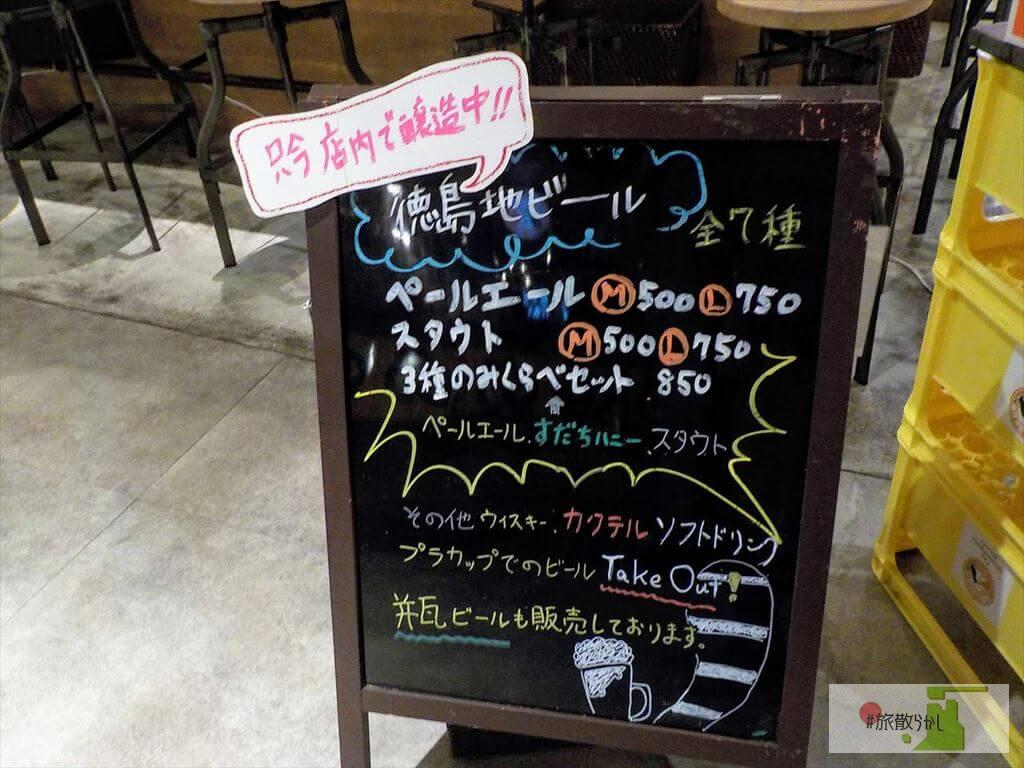 只今店内で醸造中!!
徳島地ビール
全7種
ペールエール Ⓜ500 Ⓛ750
スタウト Ⓜ500 Ⓛ750
3種のみくらべセット 850
⇧
ペールエール.すだちハニー.スタウト
その他 ウィスキー.カクテル ソフトドリンク
プラカップでのビール Take Out!
瓶ビールも販売しております。
#旅散らかし